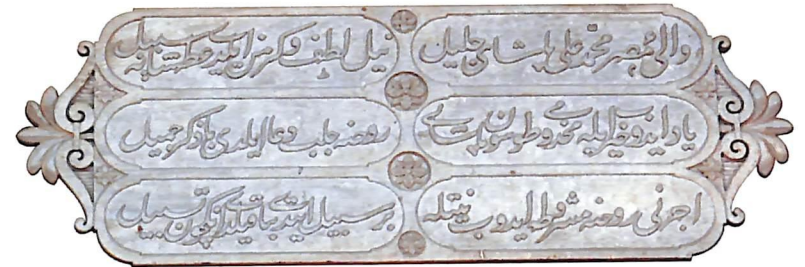 والی مصر محمد علی پاشای جلیل نیل لطف و کرمن ایلدی عطشانه سبیل
یاد ایدوب خیر ایله مخدومی طوسون پاشایی روحنه جلب دعا ایلدی با ذکر جمیل
اجرنی روحنه مشروط ایدوب نیتله بر سبیل ایتدی بنا قیلدی انکچون تسبیل